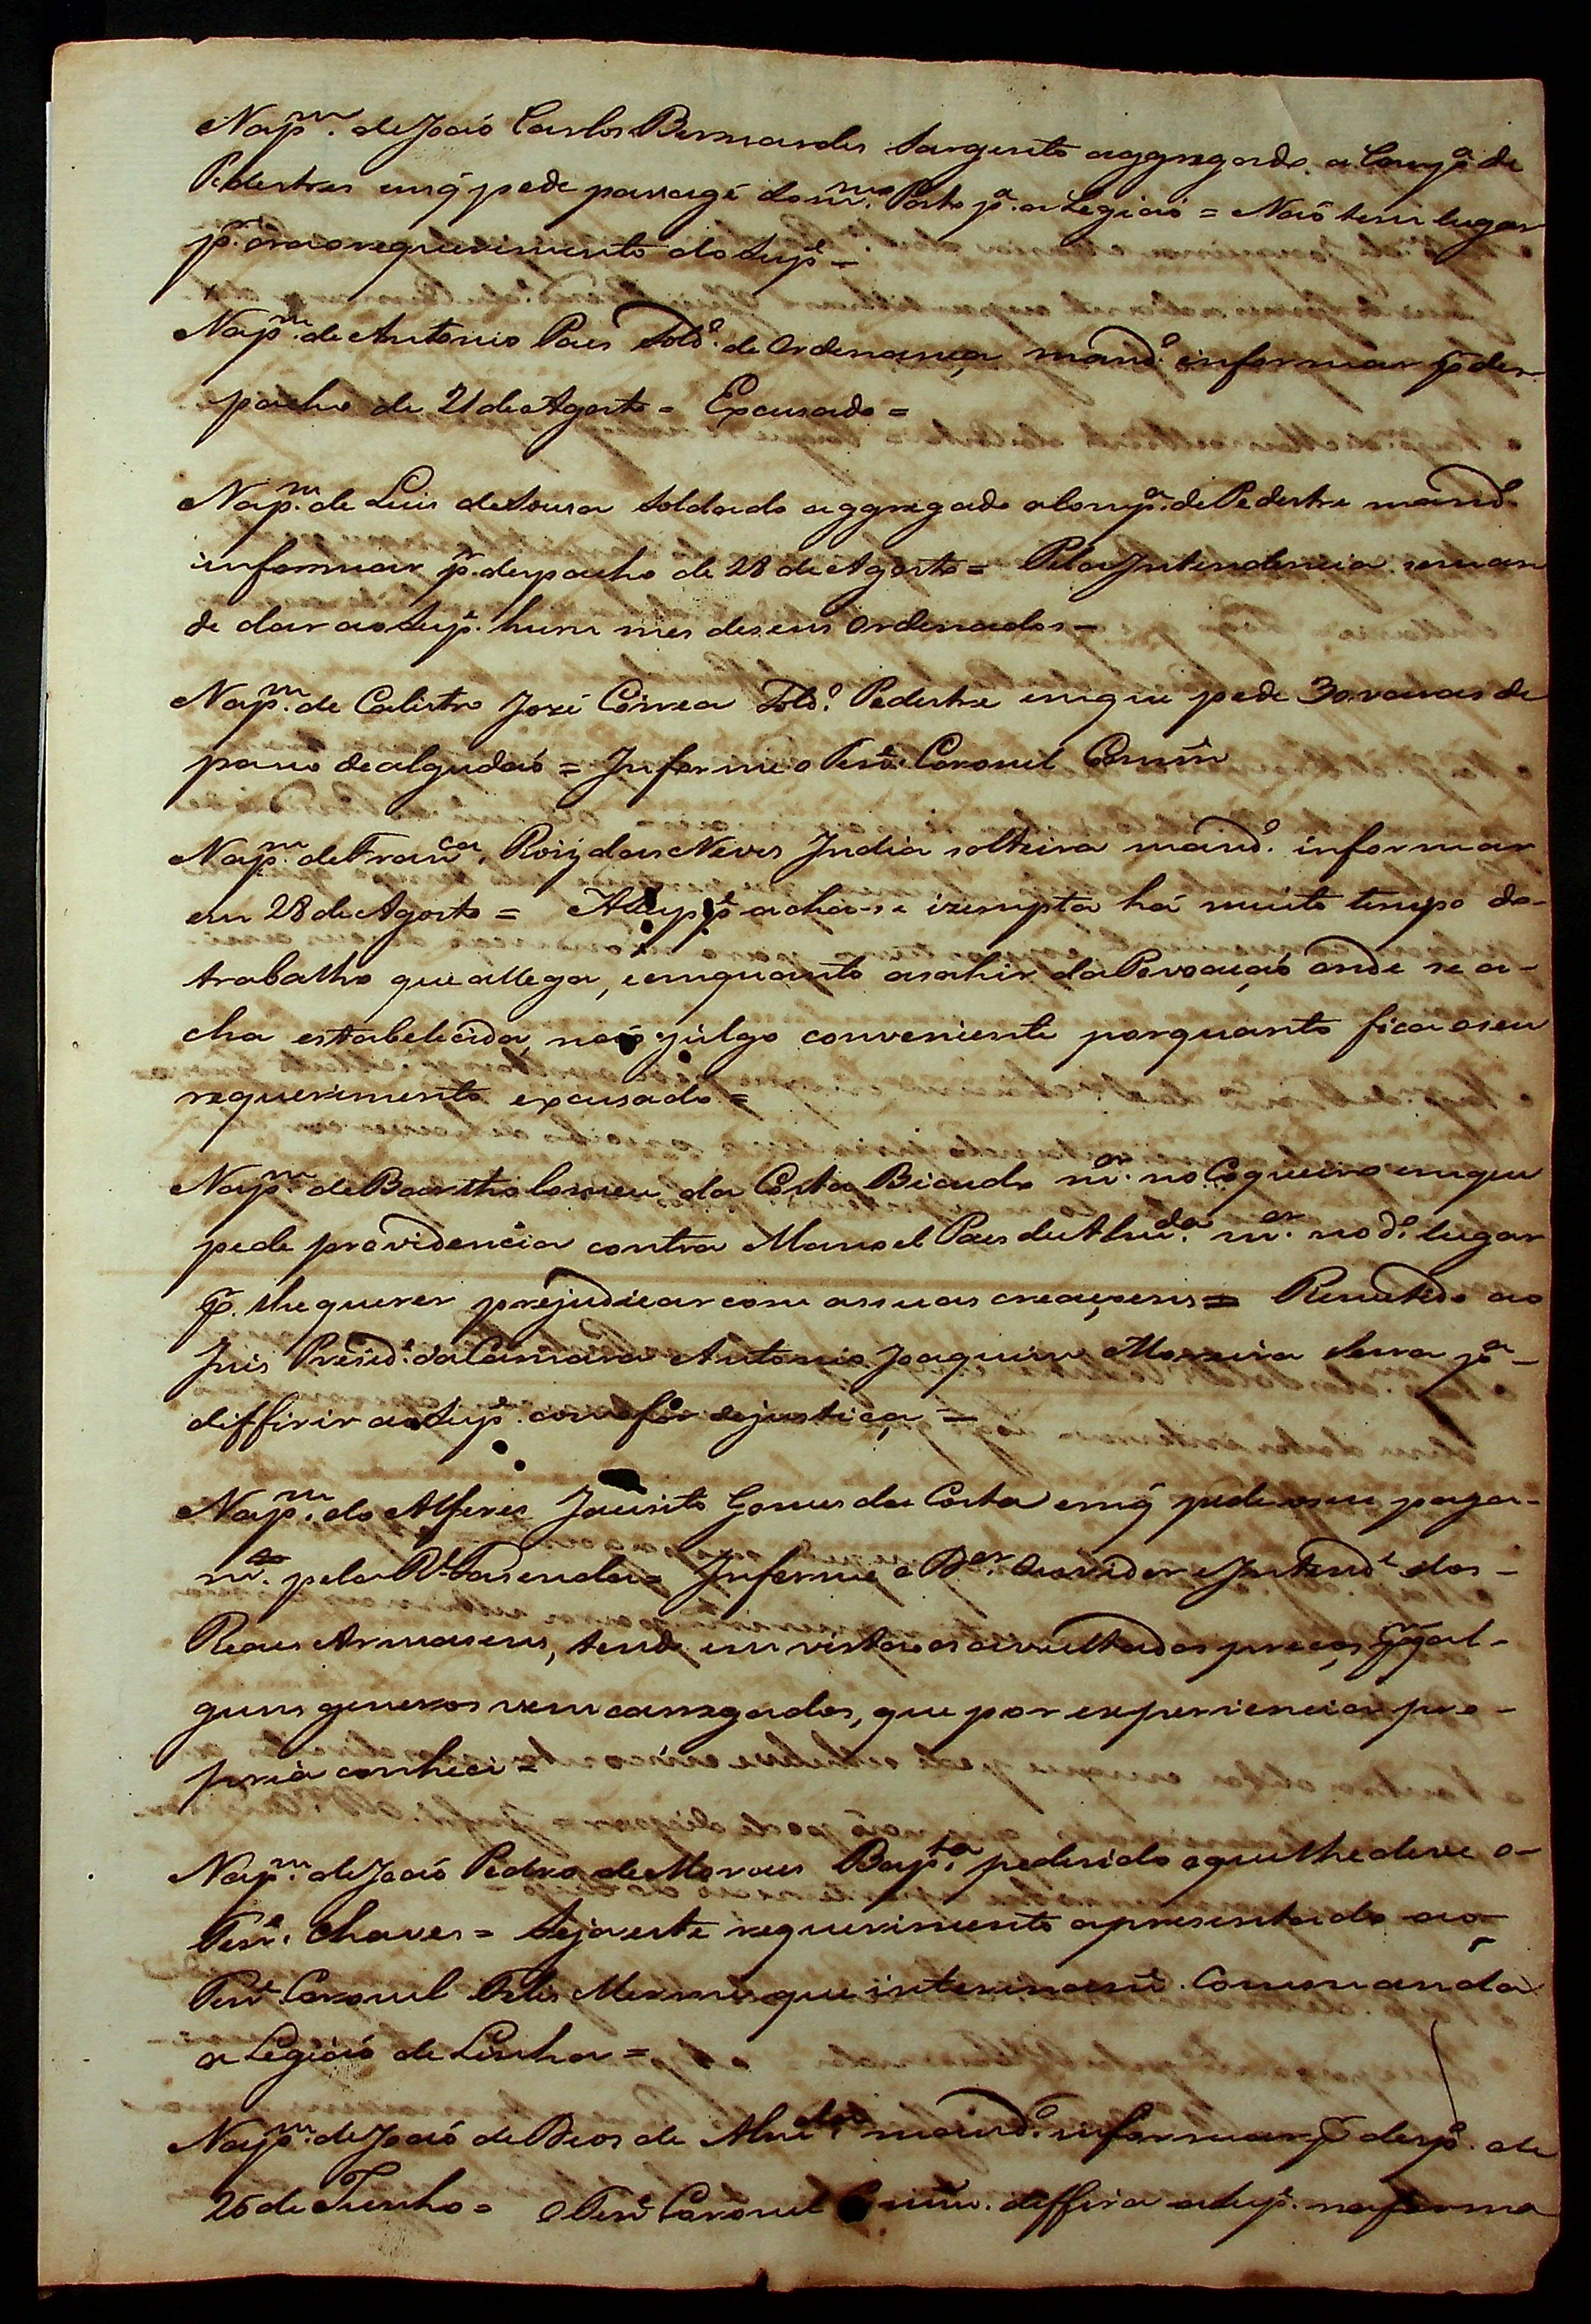 Na p.m de João Carlos Bernardes Sargento aggregado a Comp.a de
Pedestres em q̃ pede passagẽ do m.mo Posto p.a a Legiaõ = Naõ tem lugar
p.r ora o requerimento do Sup.e =
Na p.m de Antonio Paes Sold.o de Ordenança, mand.o informar p.r des-
pacho de 21 de Agosto = Escusado =
Na p.m de Luis de Sousa Soldado aggregado a Comp.a de Pedestre mand.o
informar p.r despacho de 28 de Agosto = Pela Intendencia se man
de dar ao Sup.e hum mes de seus Ordenados =
Na p.m de Calistro José Corrêa Sold.o Pedestre em que pede 30 varas de
pano de algudaõ = Informe o Ten.e Coronel Comm.e
Na p.m de Fran.ca Roiz das Neves India solteira mand.o informar
em 28 de Agosto = A Supp.e acha-se izempta há muito tempo do-
trabalho que allega, e emquanto a sahir da Povoaçaõ onde se a-
cha estabelecida, naõ julgo conveniente porquanto fica o seu
requerimento escusado =
Na p.m de Bartholomeu da Costa Bicudo m.or no Coqueiro em que
pede providencia contra Manoel Paes de Alm.da m.or no d.o lugar
p.r lhe querer prejudicar com as suas creaçoens = Remetido ao
Juis Presid.e da Camara Antonio Joaquim Moreira Serra p.a
diffirir ao Sup.e como fôr de justiça =
Na p.m do Alferes Jacinto Gomes da Costa em q̃ pede o seu paga-
m.to pela R.l Fasenda = Informe o D.or Ouvidor e Intend.e dos-
Reaes Armasens, tendo em vista os avultados preços p.r q̃ al-
guns generos vem carregados, que por experiencia pro-
pria conheci =
Na p.m de João Pedro de Moraes Bap.ta pedindo o que lhe deve o-
Ten.e Chaves = Seja este requerimento apresentado ao
Ten.e Coronel que interinam.e Commanda
a Legiaõ de Linha =
Na p.m de João de Deos de Alm.da mand.o informar p.r desp.o de
26 de Junho = O Ten.e Coronel Comm.e diffira a Sup.e na forma